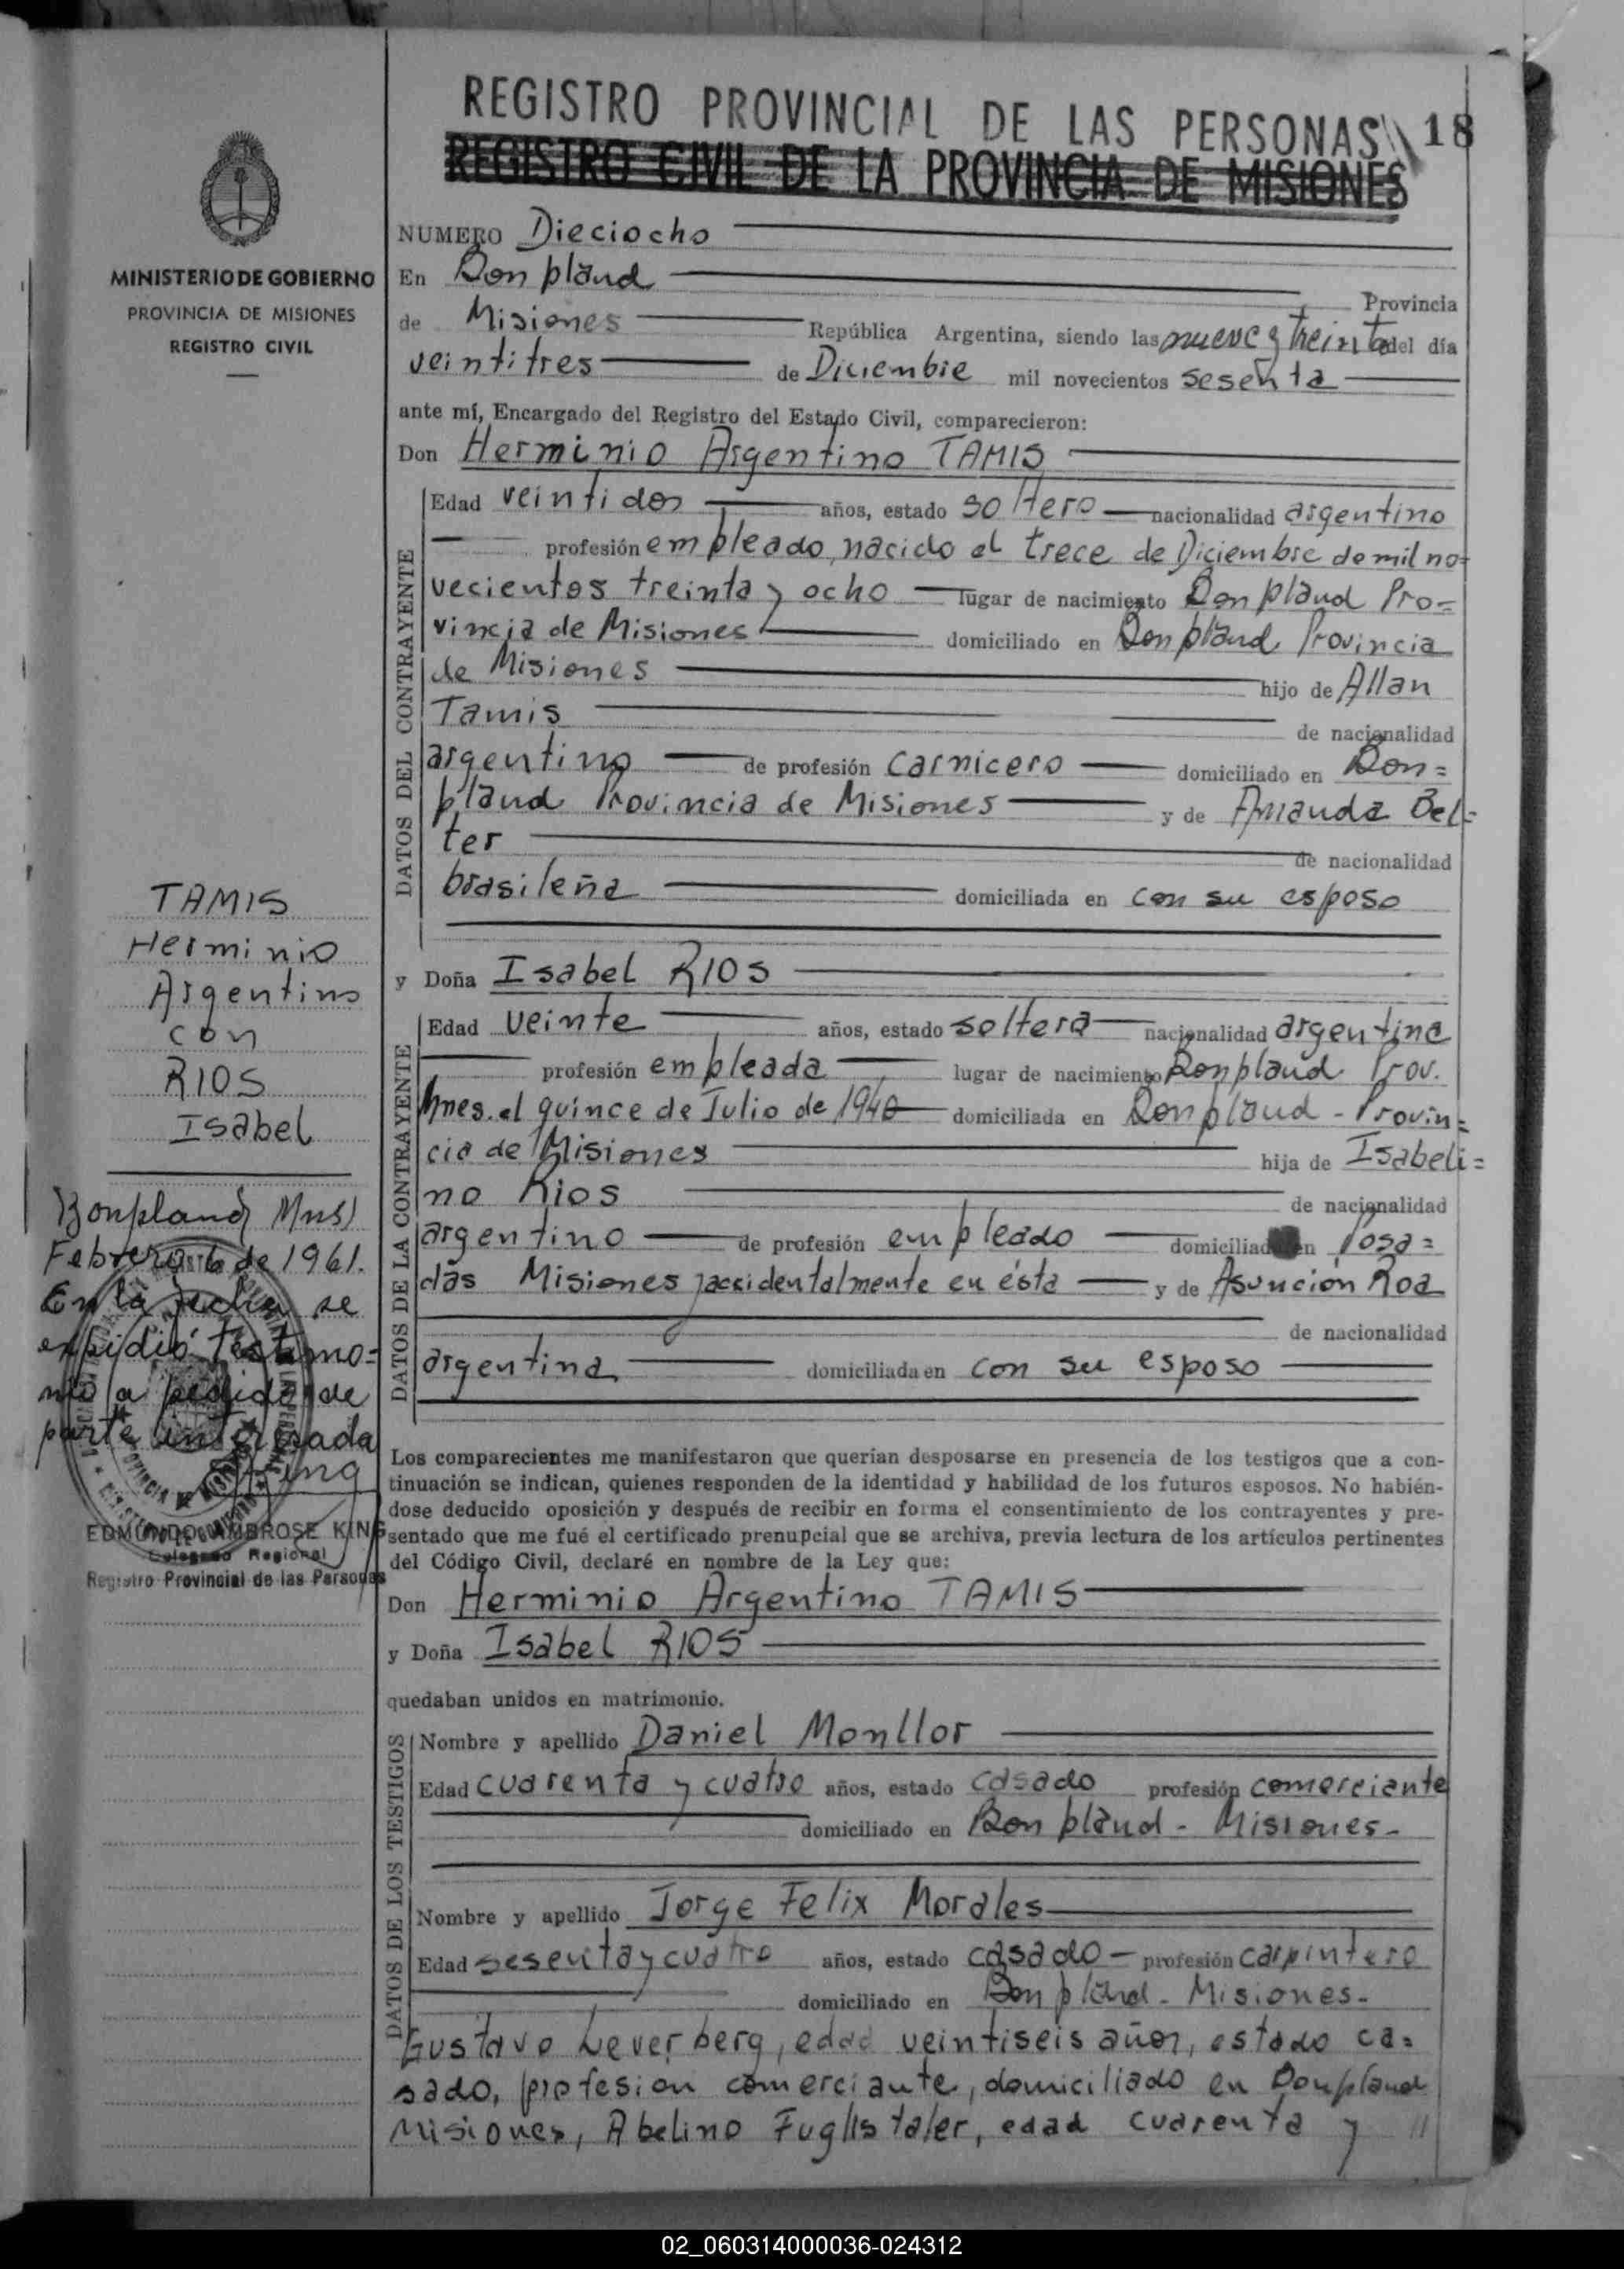 REGISTRO PROVINCIAL DE LAS PERSONAS 18
REGISTRO CIVIL DE LA PROVINCIA DE MISIONES
MINISTERIO DE GOBIERNO
PROVINCIA DE MISIONES
REGISTRO CIVIL
NUMERO Dieciocho
En Bonpland
Provincia
de Misiones República Argentina, siendo las nueve y treinta del día
veintitres de Diciembre mil novecientos sesenta
ante mí, Encargado del Registro del Estado Civil, comparecieron:
Don Herminio Argentino TAMIS
DATOS DEL CONTRAYENTE
Edad veintidos años, estado soltero nacionalidad argentino
profesión empleado, nacido el trece de Diciembre de mil no-
vecientos treinta y ocho lugar de nacimiento Bonpland Pro=
vincia de Misiones domiciliado en Bonpland Provincia
de Misiones hijo de Allan
Tamis de nacionalidad
argentino de profesión carnicero domiciliado en Bon=
pland Provincia de Misiones y de Amanda Bel=
ter de nacionalidad
brasileña domiciliada en con su esposo
y Doña Isabel RIOS
DATOS DE LA CONTRAYENTE
Edad veinte años, estado soltera nacionalidad argentina
profesión empleada lugar de nacimiento Bonpland Prov.
Mnes. el quince de Julio de 1940 domiciliada en Bonpland - Provin=
cia de Misiones hija de Isabeli=
no Rios de nacionalidad
argentino de profesión empleado domiciliado en Posa=
das Misiones y accidentalmente en ésta y de Asunción Roa
de nacionalidad
argentina domiciliada en con su esposo
Los comparecientes me manifestaron que querían desposarse en presencia de los testigos que a con-
tinuación se indican, quienes responden de la identidad y habilidad de los futuros esposos. No habién-
dose deducido oposición y después de recibir en forma el consentimiento de los contrayentes y pre-
sentado que me fué el certificado prenupcial que se archiva, previa lectura de los artículos pertinentes
del Código Civil, declaré en nombre de la Ley que:
Don Herminio Argentino TAMIS
y Doña Isabel RIOS
quedaban unidos en matrimonio.
DATOS DE LOS TESTIGOS
Nombre y apellido Daniel Monllor
Edad cuarenta y cuatro años, estado casado profesión comerciante
domiciliado en Bonpland - Misiones -
Nombre y apellido Jorge Felix Morales
Edad sesenta y cuatro años, estado casado - profesión carpintero
domiciliado en Bonpland - Misiones -
Gustavo Leverberg, edad veintiseis años, estado ca=
sado, profesion comerciante, domiciliado en Bonpland
Misiones, Abelino Fuglistaler, edad cuarenta y "
TAMIS
Herminio
Argentino
con
RIOS
Isabel
Bonpland Mns)
Febrero 6 de 1961.
En la fecha se
expidió testimo=
nio a pedido de
parte interesada
King
EDMUNDO AMBROSE KING
Delegado Regional
Registro Provincial de las Personas
02_060314000036-024312